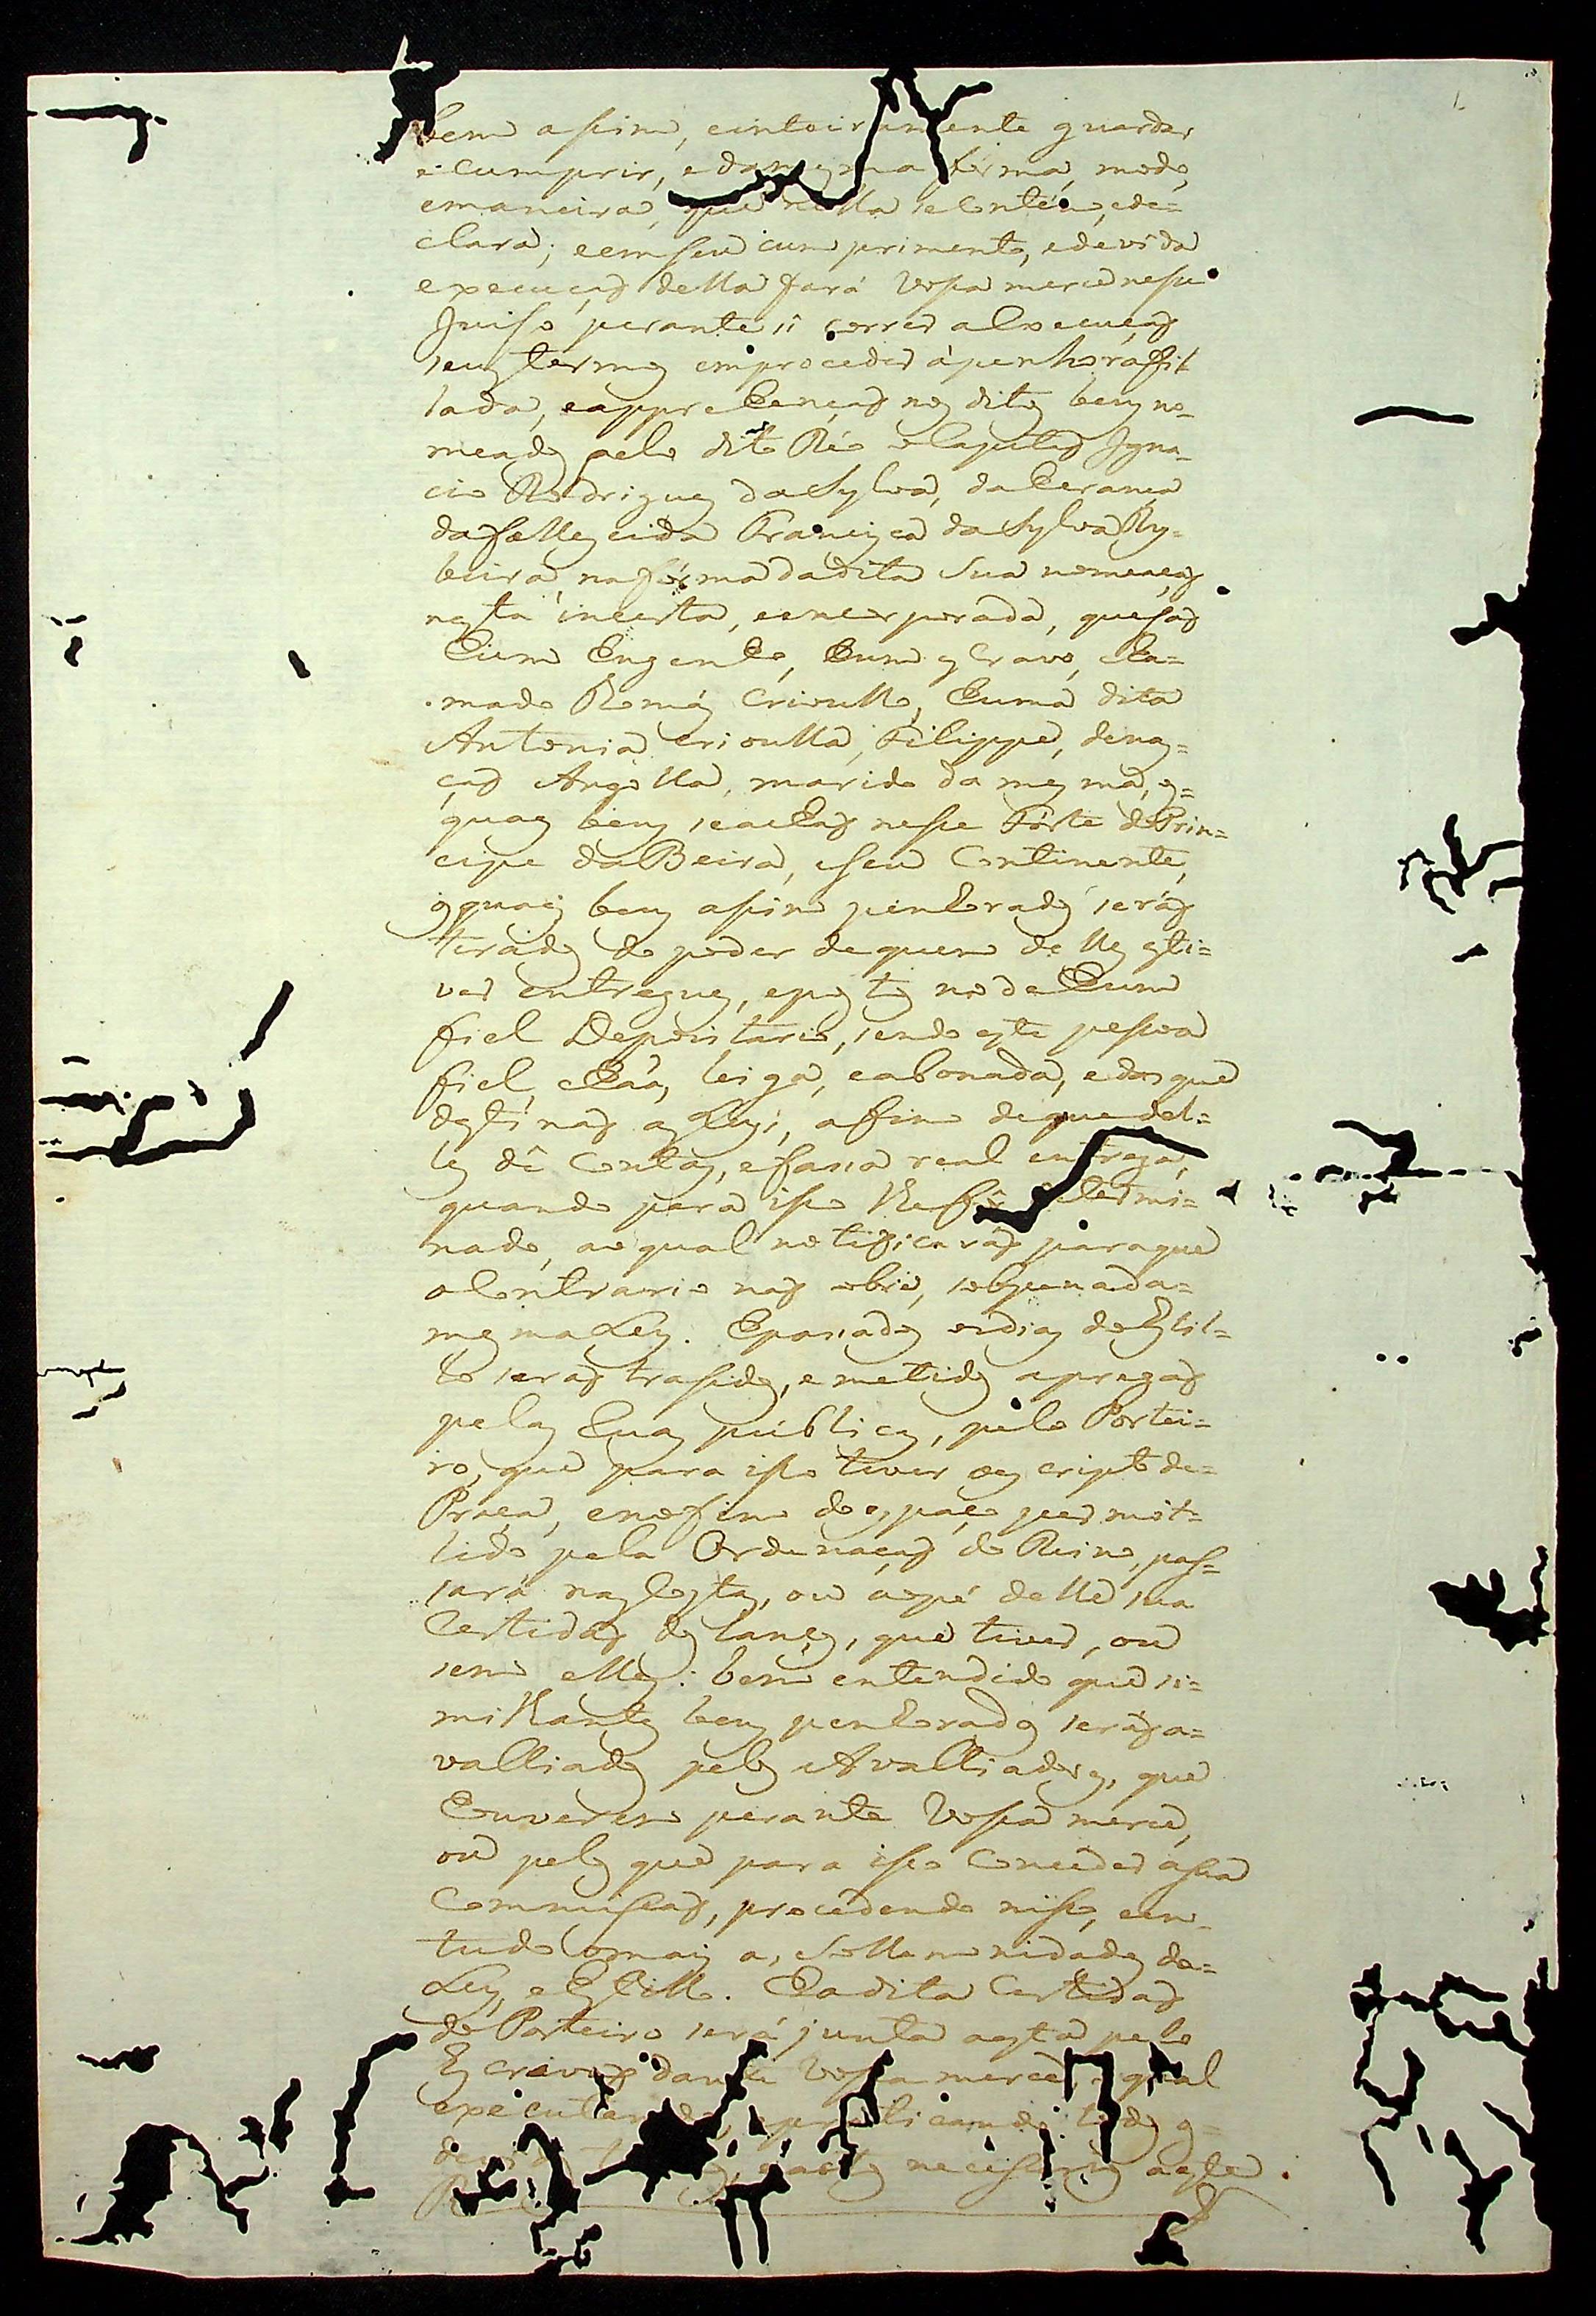 bem assim, eintoiramente guardar,
e cumprir, edamesma fórma, modo,
emaneira, que nella secontém, ede=
clara; eemseu cumprimento, edevida
execuçaõ della fará Vossa mercê nesse
Juiso perante si correr aexecuçaõ
seus termos emproceder ápenhora filt
lada, eapprehençaõ nos ditos bens no=
meados pelo dito Réo oCapitaõ Igna=
cio Rodrigues daSylva, daherança
dafallescida Francisca daSylva Ry=
beira, nafórma dadita sua nomeaçaõ
nesta incerta, eencorporada, quesaõ
hum Engenho, hum escravo, cha=
mado Romaõ Crioullo, huma dita
Antonia crioulla, Filippe, denas=
çaõ Angolla, marido da mesma, os=
quaes bens seachaõ nesse Fórte doPrin=
cipe daBeira, eseu Continente,
osquaes bens assim penhorados seraõ
tirados do poder dequem delles esti=
ver entregues, epostos noda hum
fiel Depositario, sendo este pessoa
fiel, chãa, leiga, eabonada, edasque
destinaõ asLeys, afim deque del=
les dê Contas, efassa real entrega,
quando para isso lhefôr determi=
nado, aoqual notificaráõ paraque
oContrario naõ obre, sobpenada=
mesmaLey. Epassados osdias doEstil=
lo seraõ trasidos, emetidos apregaõ
pelas Ruas publicas, pelo Portei=
ro, que para isso tiver oescripto da=
Praça, enofim doespaço permit=
tido pela Ordenaçaõ do Reino, pas=
sará nasCostas, ou aopé delle sua
Certidaõ dos lanços, que tiver, ou
sem elles: bem entendido que si=
milhantes bens penhorados seraõ a=
valliados pelos Avalliadores, que
houverem perante Vossa mercê,
ou pelos que para isso Conceder asua
Commissaõ, procedendo nisso, eem=
tudo omais as, Sollemnidades da=
Ley, eEstillo. Eadita Certidaõ
do Porteiro será junta aesta pelo
Escrivaõ dante Vossa mercê, oqual
executando, epraticando todos os=
devidos termos, eactos necessarios aeste